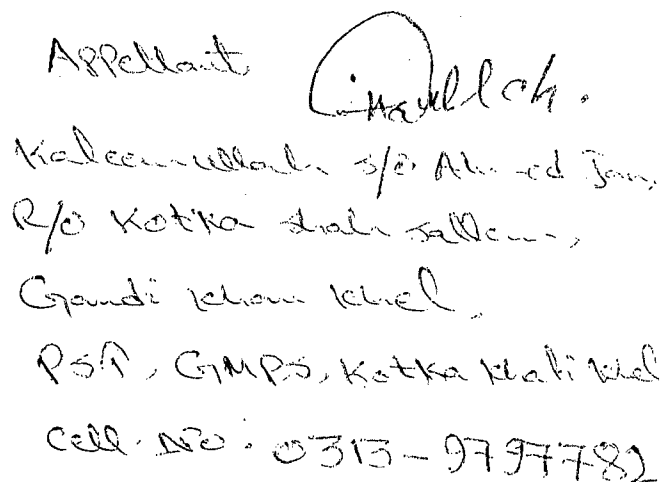 Appellant
Kaleemullah s/o Ahmed Jan,
R/o Kotka shah salleem,
Gandi Khan Khel,
PST, GMPS, Kotka Khel
Cell. No: 0313-9797782